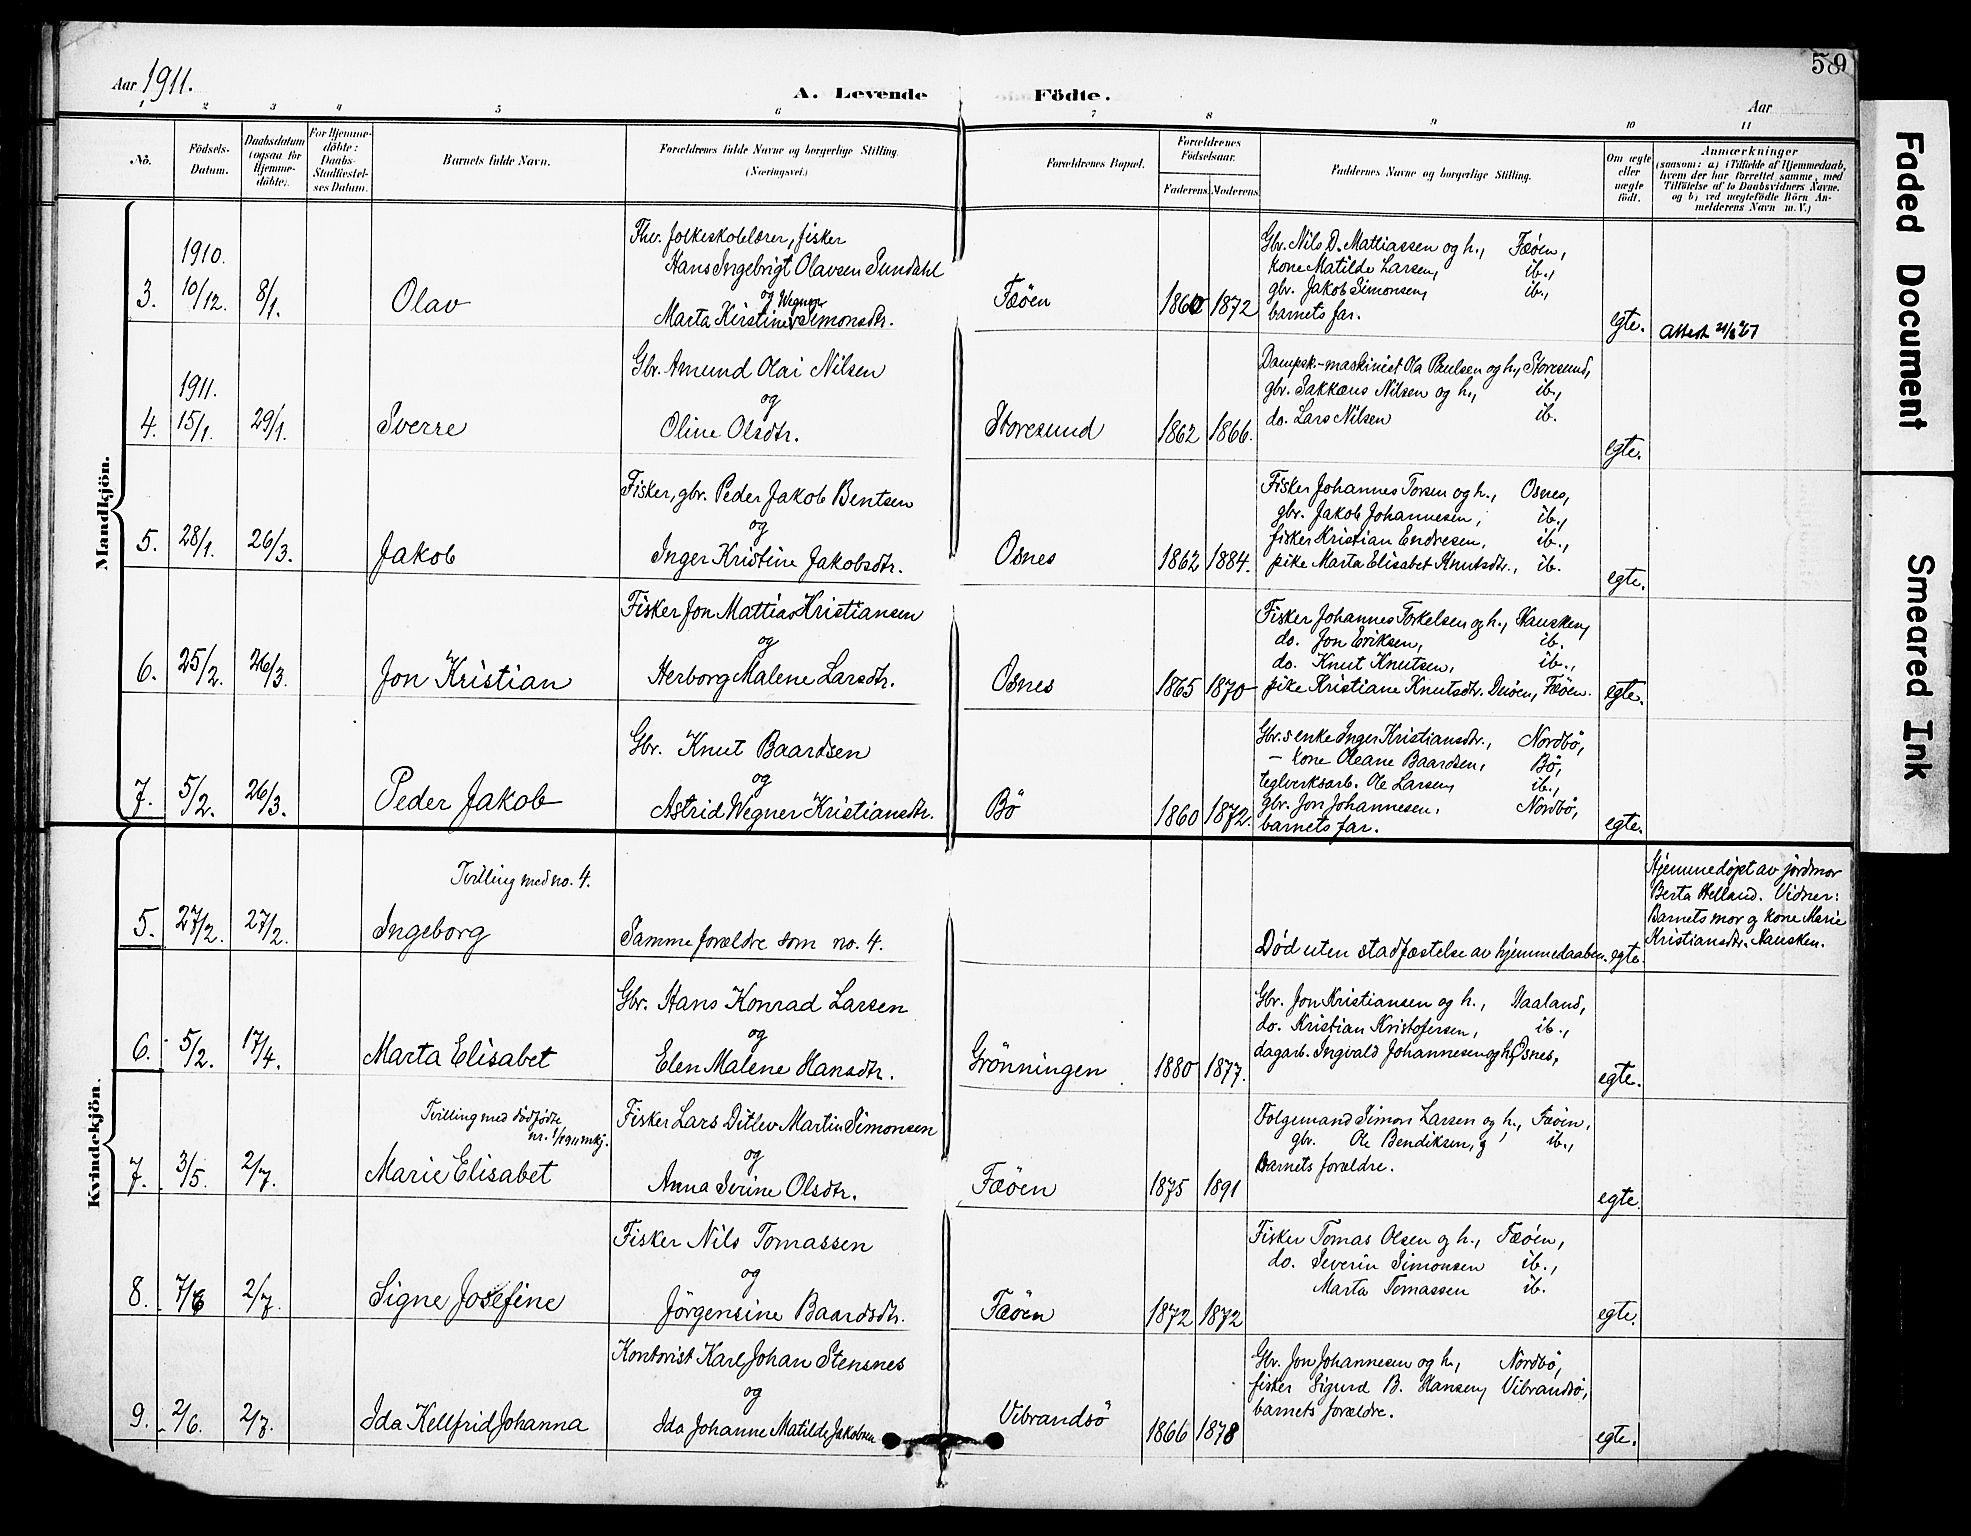 Aar 1911.
A. Levende Födte.
Aar
59
1 2 3 4 5 6 7 8 9 10 11
No.
Födsels-Datum.
Daabsdatum (ogsaa for Hjemme-döbte).
For Hjemme-döbte: Daabs-Stadfæstel-ses Datum.
Barnets fulde Navn.
Forældrenes fulde Navne og borgerlige Stilling.
(Næringsvei.)
Forældrenes Bopæl.
Forældrenes Födselsaar.
Faderens Moderens
Faddernes Navne og borgerlige Stilling.
Om ægte eller uægte födt.
Anmærkninger
(saasom: a) i Tilfælde af Hjemmedaab,
hvem der har forrettet samme, med
Tilföielse af to Daabsvidners Navne.
og b) ved uægtefödte Börn An-
melderens Navn m. V.)
Mandkjön.
3. 1910. 10/12. 8/1. Olav
Fhv. folkeskolelærer, fisker
Hans Ingebrigt Olavsen Sundahl
og Wegner
Marta Kirstine Simonsdtr.
Fæöen 1860 1872
Gbr. Nils D. Mattiassen og h., Fæöen,
kone Matilde Larsen, ib.,
gbr. Jakob Simonsen, ib.,
barnets far.
egte.
Attest
4. 1911. 15/1. 29/1. Sverre
Gbr. Amund Olai Nilsen
og
Oline Olsdtr.
Storesund 1862 1866.
Dampsk.-maskinist Ola Paulsen og h., Storesund,
gbr. Sakkæus Nilsen og h., ib.,
do. Lars Nilsen ib.
egte.
5. 28/1. 26/3. Jakob
Fisker, gbr. Peder Jakob Bentsen
og
Inger Kristine Jakobsdtr.
Osnes 1862 1884.
Fisker Johannes Torsen og h., Osnes,
gbr. Jakob Johannesen, ib.,
fisker Kristian Endresen, ib.,
pike Marta Elisabet Knutsdtr., ib.
egte.
6. 25/2. 26/3. Jon Kristian
Fisker Jon Mattias Kristiansen
og
Herborg Malene Larsdtr.
Osnes 1865 1870
Fisker Johannes Torkelsen og h., Hausken,
do. Jon Eriksen, ib.
do. Knut Knutsen, ib.,
pike Kristiane Knutsdtr. Duöen, Fæöen.
egte.
7. 5/2. 26/3. Peder Jakob
Gbr. Knut Baardsen
og
Astrid Wegner Kristiansdtr.
Bö 1860 1872.
Gbr.s enke Inger Kristiansdtr., Nordbö,
– kone Oleane Baardsen, Bö,
teglverksarb. Ole Larsen, ib.,
gbr. Jon Johannesen, Nordbö,
barnets far.
egte.
Kvindekjön.
5. 27/2. 27/2.
Tvilling med no. 4.
Ingeborg
Samme forældre som no. 4.
Död uten stadfæstelse av hjemmedaaben.
egte.
Hjemmedöpt av jordmor
Berta Helland. Vidner:
Barnets mor og kone Marie
Kristiansdtr. Hausken.
6. 5/2. 17/4. Marta Elisabet
Gbr. Hans Konrad Larsen
og
Elen Malene Hansdtr.
Grönningen 1880 1877.
Gbr. Jon Kristiansen og h., Haaland,
do. Kristian Kristofersen, ib.,
dagarb. Ingvald Johannesen og h., Osnes,
egte.
7. 3/5. 2/7.
Tvilling med dödfödte
nr. 1/1911 mkj.
Marie Elisabet
Fisker Lars Ditlev Martin Simonsen
og
Anna Serine Olsdtr.
Fæöen 1875 1891
Folgemand Simon Larsen og h., Fæöen,
gbr. Ole Bendiksen, ib.,
Barnets forældre.
egte.
8. 7/6 2/7. Signe Josefine
Fisker Nils Tomassen
og
Jörgensine Baardsdtr.
Fæöen 1872 1872
Fisker Tomas Olsen og h., Fæöen,
do. Severin Simonsen ib.,
Marta Tomassen ib.
egte.
9. 2/6. 2/7. Ida Kellfrid Johanna
Kontorist Karl Johan Stensnes
og
Ida Johanne Matilde Jakobsen
Vibrandsö 1866 1878
Gbr. Jon Johannesen og h., Nordbö,
fisker Sigurd B. Hansen, Vibrandsö,
barnets forældre.
egte.
Faded Document
Smeared Ink